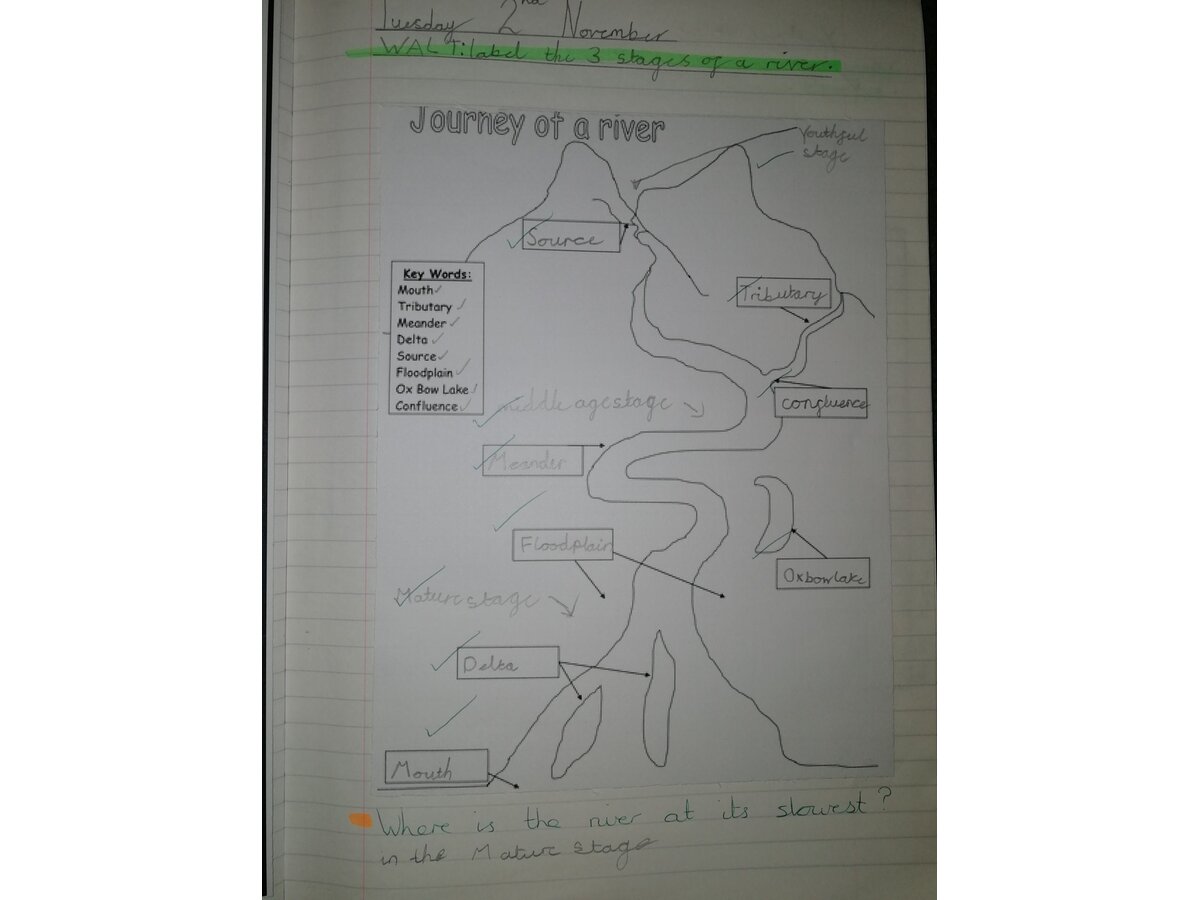 Tuesday 2nd November
WALT: label the 3 stages of a river.
Journey of a river
Youthful
stage
Source
Key Words:
Mouth
Tributary
Meander
Delta
Source
Floodplain
Ox Bow Lake
Confluence
Tributary
middle age stage
confluence
Meander
Floodplain
Oxbow lake
Mature stage
Delta
Mouth
Where is the river at its slowest?
in the Mature stage